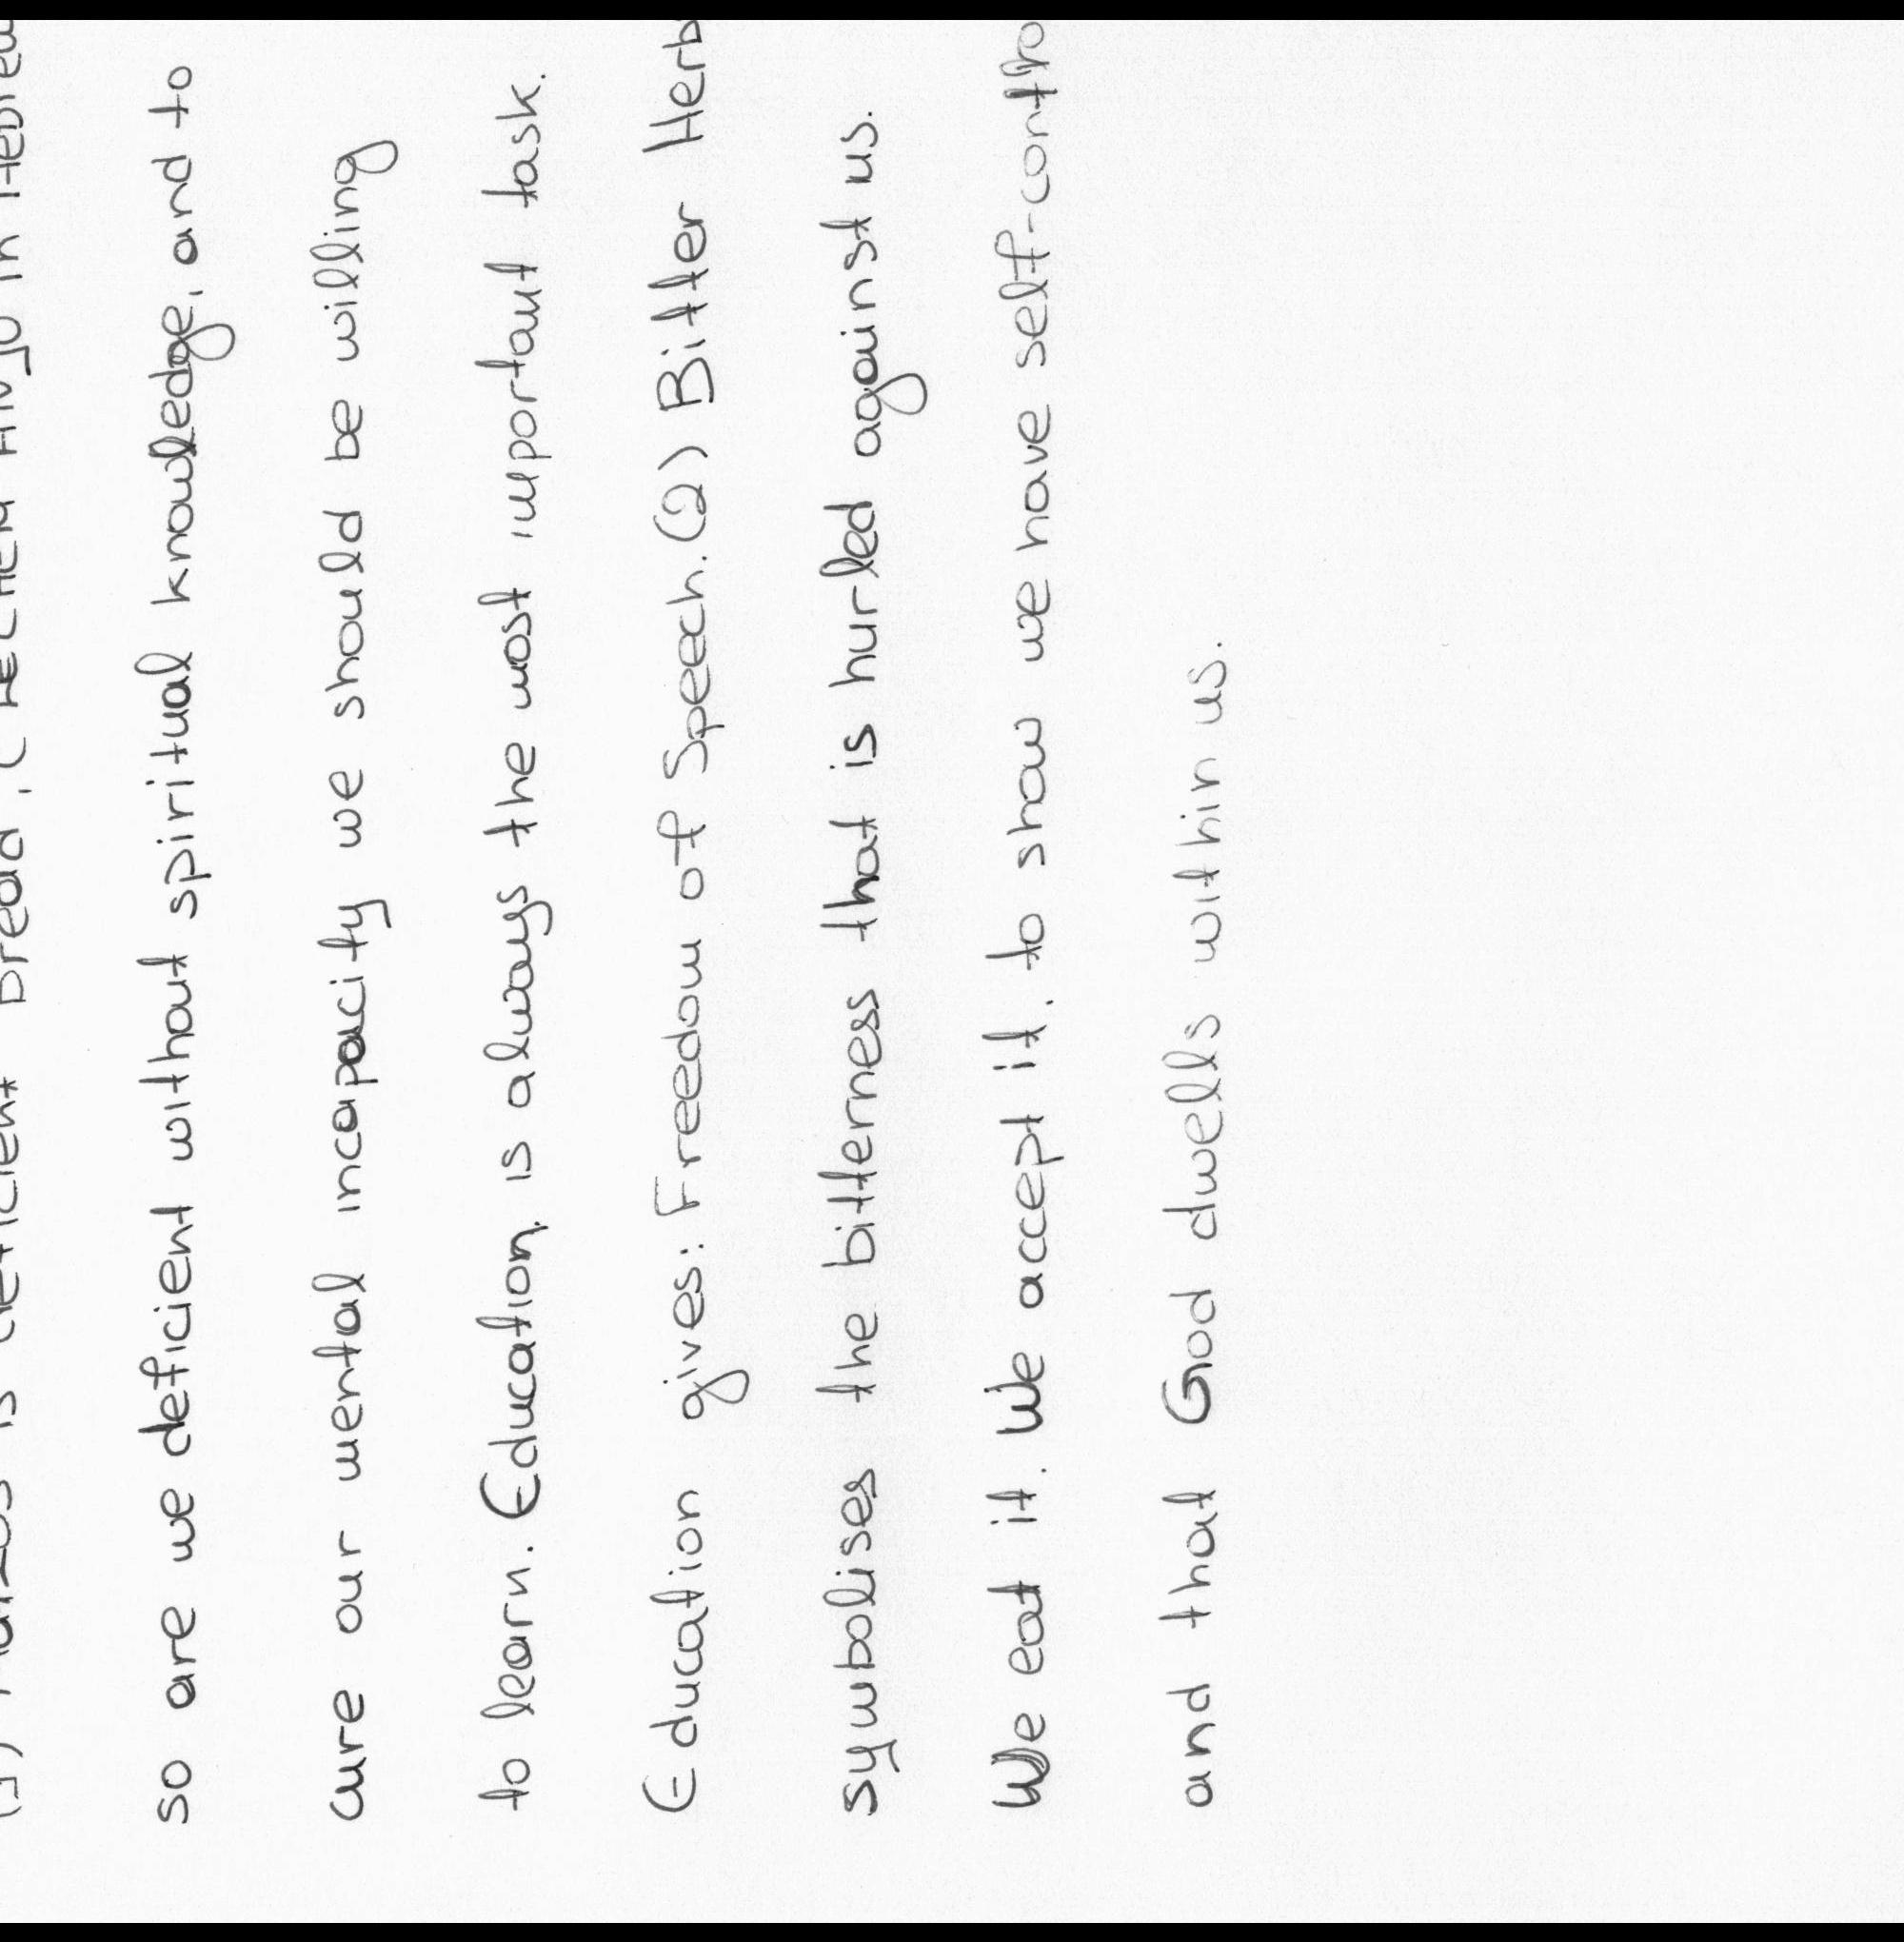 is deficient bread,
so are we deficient without spiritual knowledge, and to
cure our mental incapacity we should be willing
to learn. Education, is always the most important task.
Education gives: Freedom of Speech. (2) Bitter Herb
symbolises the bitterness that is hurled against us.
We eat it. We accept it, to show we have self-contro
and that God dwells within us.